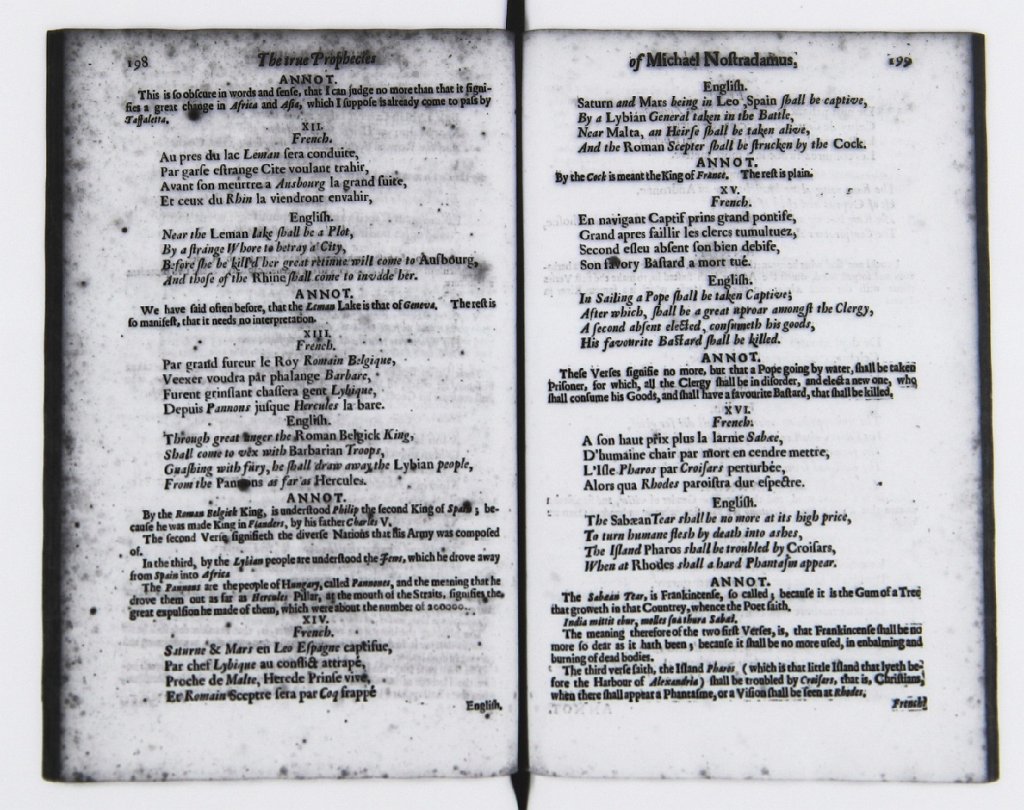 198 The true Prophecies
ANNOT.
This is so obscure in words and sense, that I can judge no more than that it signi-
fies a great change in Africa and Asia, which I suppose is already come to pass by
Taffaletta.
XII.
French.
Au pres du lac Leman sera conduite,
Par garse estrange Cite voulant trahir,
Avant son meurtre a Ausbourg la grand suite,
Et ceux du Rhin la viendront envahir,
English.
Near the Leman lake shall be a Plot,
By a strange Whore to betray a City,
Before she be kill'd her great retinue will come to Ausbourg,
And those of the Rhine shall come to invade her.
ANNOT.
We have said often before, that the Leman Lake is that of Geneva. The rest is
so manifest, that it needs no interpretation.
XIII.
French.
Par grand fureur le Roy Romain Belgique,
Veexer voudra par phalange Barbare,
Furent grinssant chassera gent Lybique,
Depuis Pannons jusque Hercules la bare.
English.
Through great anger the Roman Belgick King,
Shall come to vex with Barbarian Troops,
Gnashing with fury, he shall draw away the Lybian people,
From the Pannons as far as Hercules.
ANNOT.
By the Roman Belgick King, is understood Philip the second King of Spain, be-
cause he was made King in Flanders, by his father Charles V.
The second Verse signifieth the diverse Nations that his Army was composed
of.
In the third, by the Lybian people are understood the Jews, which he drove away
from Spain into Africa
The Pannons are the people of Hungary, called Pannones, and the meaning that he
drove them out as far as Hercules Pillar, at the mouth of the Straits, signifies the
great expulsion he made of them, which were about the number of 200000.
XIV.
French.
Saturne & Mars en Leo Espagne captifue,
Par chef Lybique au conflict attrapé,
Proche de Malte, Herede Prinse vive,
Et Romain Sceptre sera par Coq frappé
English,
of Michael Nostradamus. 199
English.
Saturn and Mars being in Leo Spain shall be captive,
By a Lybian General taken in the Battle,
Near Malta, an Heirse shall be taken alive,
And the Roman Scepter shall be strucken by the Cock.
ANNOT.
By the Cock is meant the King of France. The rest is plain.
XV.
French.
En navigant Captif prins grand pontife,
Grand apres faillir les clercs tumultuez,
Second esleu absent son bien debise,
Son favory Bastard a mort tué.
English.
In Sailing a Pope shall be taken Captive;
After which, shall be a great uproar amongst the Clergy,
A second absent elected, consumeth his goods,
His favourite Bastard shall be killed.
ANNOT.
These Verses signifie no more, but that a Pope going by water, shall be taken
Prisoner, for which, all the Clergy shall be in disorder, and elect a new one, who
shall consume his Goods, and shall have a favourite Bastard, that shall be killed.
XVI.
French.
A son haut prix plus la larme Sabæe,
D'humaine chair par mort en cendre mettre,
L'Isle Pharos par Croisars perturbée,
Alors qua Rhodes paroistra dur espectre.
English.
The Sabæan Tear shall be no more at its high price,
To turn humane flesh by death into ashes,
The Island Pharos shall be troubled by Croisars,
When at Rhodes shall a hard Phantasm appear.
ANNOT.
The Sabean Tear, is Frankincense, so called, because it is the Gum of a Tree
that groweth in that Countrey, whence the Poet saith,
India mittit ebur, molles sua thura Sabæi.
The meaning therefore of the two first Verses, is, that Frankincense shall be no
more so dear as it hath been, because it shall be no more used, in enbalming and
burning of dead bodies.
The third verse saith, the Island Pharos, (which is that little Island that lyeth be-
fore the Harbour of Alexandria) shall be troubled by Croisars, that is, Christians,
when there shall appear a Phantasme, or a Vision shall be seen at Rhodes,
French?